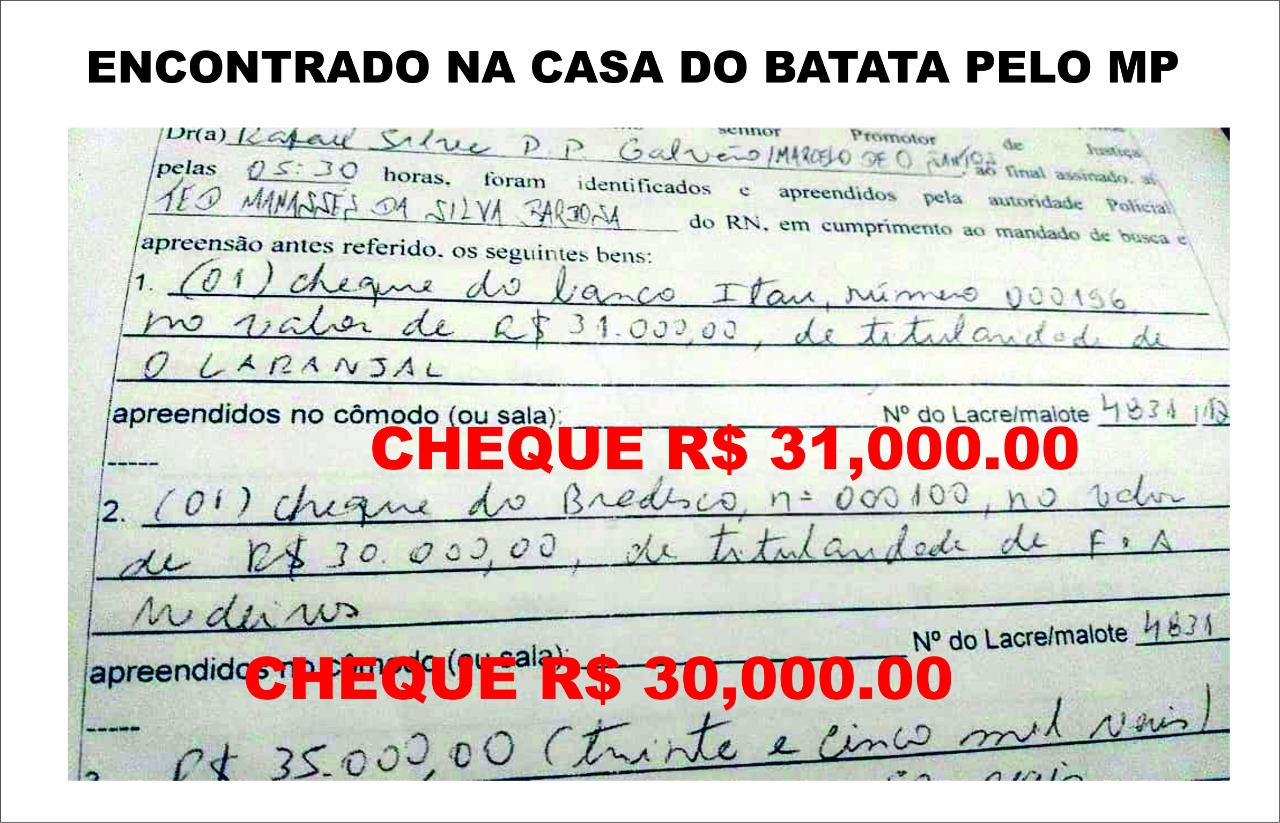 ENCONTRADO NA CASA DO BATATA PELO MP
senhor Promotor de Justiça
Dr(a) Rafael Silva P. P. Galvão/MARCELO DE O SANTOS, ao final assinado, às
pelas 05:30 horas, foram identificados e apreendidos pela autoridade Policial
TEO MANASSÉS DA SILVA BARBOSA do RN, em cumprimento ao mandado de busca e
apreensão antes referido, os seguintes bens:
1. (01) cheque do banco Itau, número 000196
no valor de R$ 31.000,00, de titularidade de
O LARANJAL
apreendidos no cômodo (ou sala): Nº do Lacre/malote 4831
CHEQUE R$ 31,000.00
-----
2. (01) cheque do Bradesco, nº 000100, no valor
de R$ 30.000,00, de titularidade de F. A
Medeiros
apreendidos no cômodo (ou sala): Nº do Lacre/malote 4831
CHEQUE R$ 30,000.00
-----
R$ 35.000,00 (trinta e cinco mil reais)